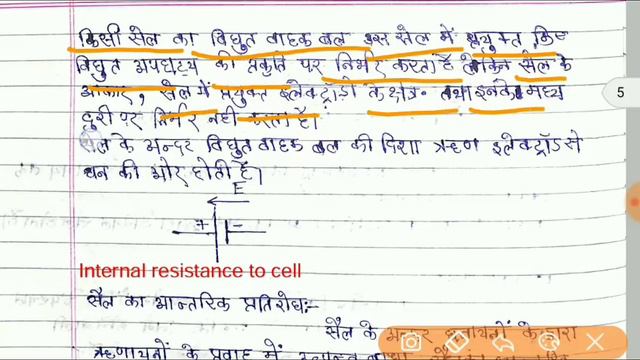 किसी सेल का विद्युत वाहक बल उस सेल में प्रयुक्त किए
विद्युत अपघट्य की प्रकृति पर निर्भर करता है लेकिन सेल के
आकार, सेल में प्रयुक्त इलेक्ट्रॉडो के क्षेत्र तथा इनके मध्य
दुरी पर निर्भर नही करता है।
सेल के अन्दर विद्युत वाहक बल की दिशा ऋण इलेक्ट्रॉड से
धन की ओर होती है।
E
+ -
Internal resistance to cell
सैल का आन्तरिक प्रतिरोध:-
सैल के अन्दर द्वारा
ऋणायनों के प्रवाह में
5